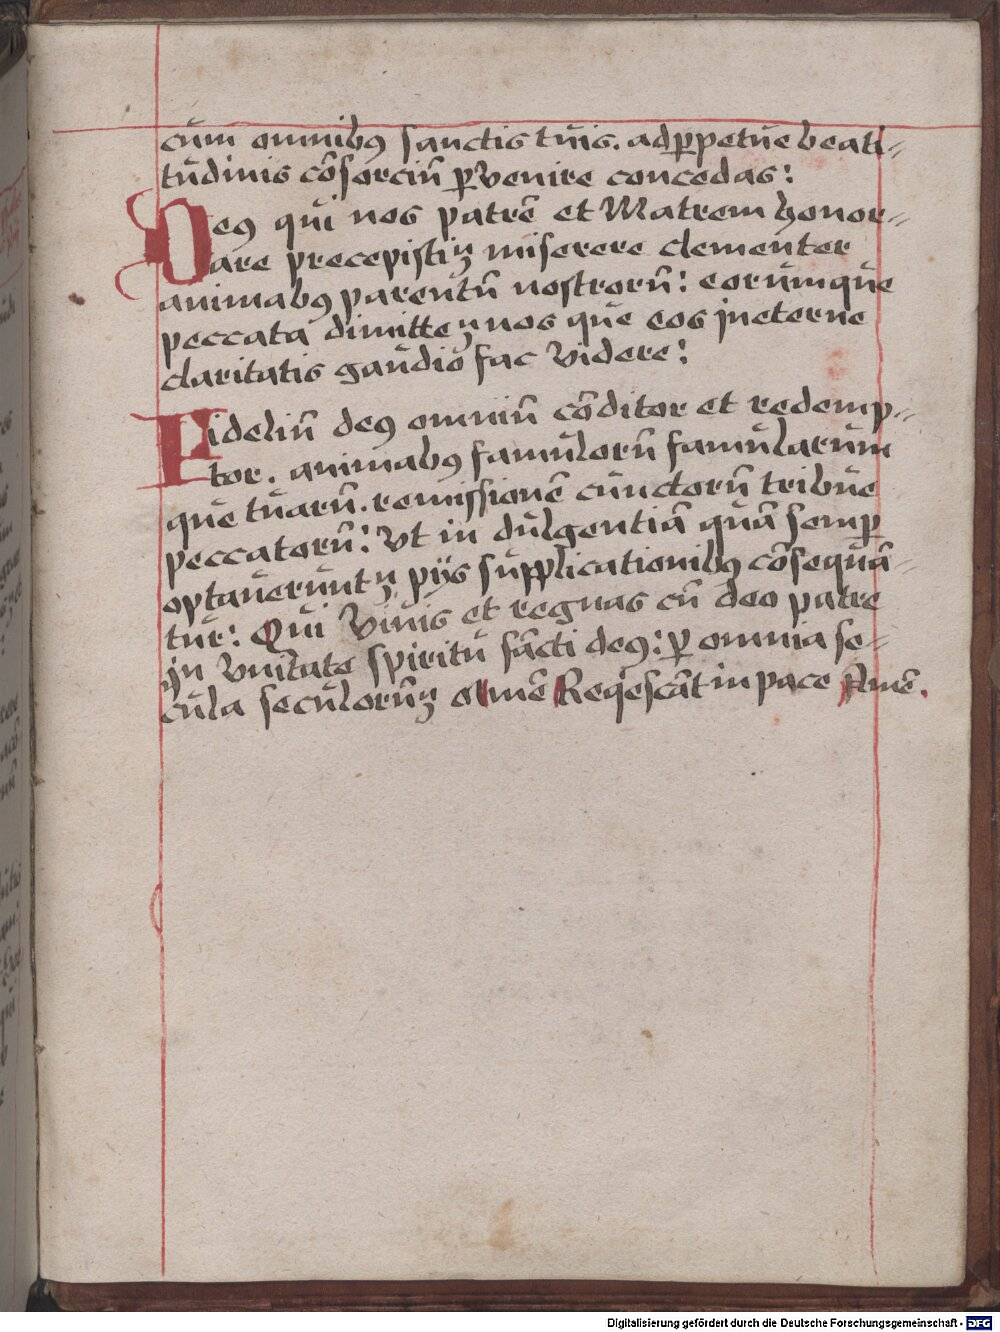 cum omnibꝰ sanctis tuis. ad ꝑpetue beati-
tudinis cōsorciū ꝑvenire concedas:
Deꝰ qui nos patrē et Matrem honor-
are precepistiꝫ miserere clementer
animabꝰ parentū nostrorū: eorumque
peccata dimitteꝫ nos que eos in eterne
claritatis gaudio fac videre:
Fideliū deꝰ omniū cōditor et redemp-
tor. animabꝰ famulorū famularum
que tuarū. remissionē cunctorū tribue
peccatorū: Vt in dulgentiā quā semꝑ
optaveruntꝫ pijs supplicationibꝰ cōsequā-
tur: Qui Vivis et regnas cū deo patre
jn vnitate spiritu sācti deꝰ: ꝑ omnia se-
cula seculorūꝫ Amē Reqescāt in pace Amē.
Digitalisierung gefördert durch die Deutsche Forschungsgemeinschaft - DFG